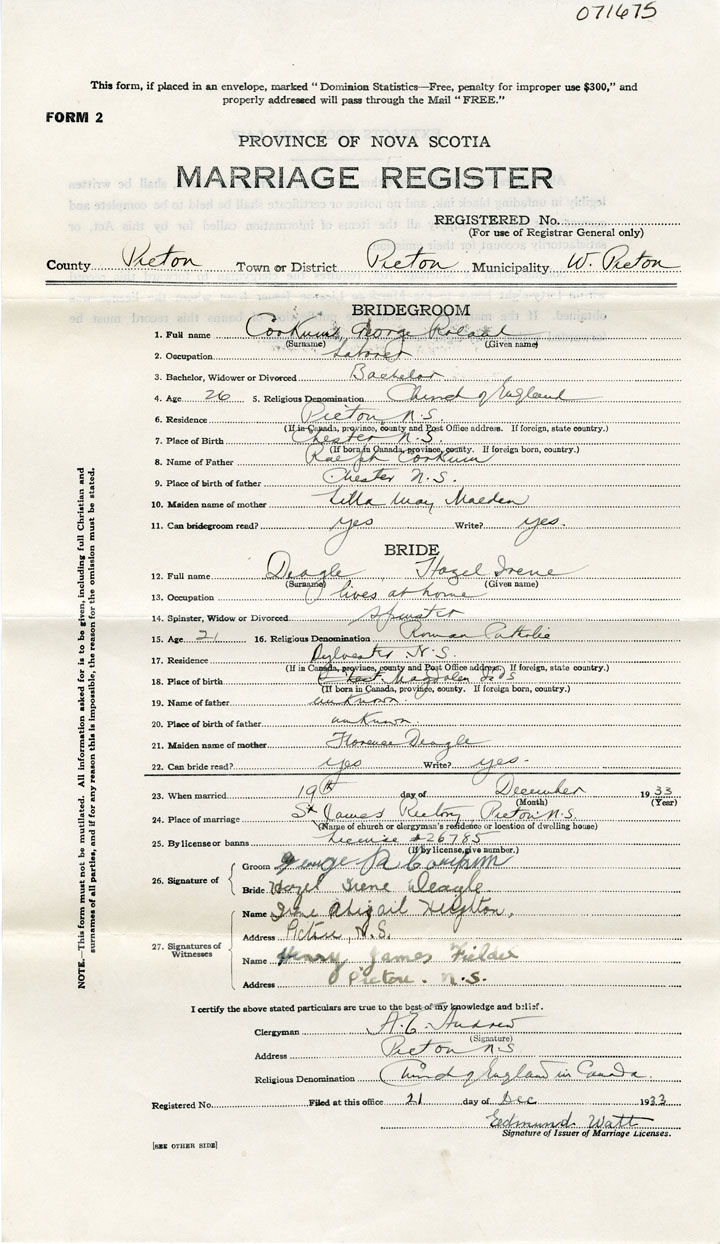 071675
This form, if placed in an envelope, marked "Dominion Statistics—Free, penalty for improper use $300," and
properly addressed will pass through the Mail "FREE."
FORM 2
PROVINCE OF NOVA SCOTIA
MARRIAGE REGISTER
REGISTERED No.
(For use of Registrar General only)
County Pictou Town or District Pictou Municipality W. Pictou
BRIDEGROOM
1. Full name Corkum George
(Surname) (Given name)
2. Occupation Laborer
3. Bachelor, Widower or Divorced Bachelor
4. Age 26 5. Religious Denomination Church of England
6. Residence Pictou N.S.
(If in Canada, province, county and Post Office address. If foreign, state country.)
7. Place of Birth Chester N.S.
(If born in Canada, province, county. If foreign born, country.)
8. Name of Father Ralph Corkum
9. Place of birth of father Chester N.S.
10. Maiden name of mother May
11. Can bridegroom read? yes Write? yes.
BRIDE
12. Full name Deagle Hazel Irene
(Surname) (Given name)
13. Occupation lives at home
14. Spinster, Widow or Divorced Spinster
15. Age 21 16. Religious Denomination Roman Catholic
17. Residence Sylvester N.S.
(If in Canada, province, county and Post Office address. If foreign, state country.)
18. Place of birth Magdalen Ids
(If born in Canada, province, county. If foreign born, country.)
19. Name of father unknown.
20. Place of birth of father unknown.
21. Maiden name of mother Florence Deagle
22. Can bride read? yes Write? yes.
23. When married 19th day of December 1933
(Month) (Year)
24. Place of marriage St James Rectory Pictou N.S.
(Name of church or clergyman's residence or location of dwelling house)
25. By license or banns License #26785
(If by license, give number.)
26. Signature of
Groom George R Corkum
Bride Hazel Irene Deagle
27. Signatures of Witnesses
Name Irene Abigail Heighton,
Address Pictou, N.S.
Name Henry James Fielder
Address Pictou. N.S.
I certify the above stated particulars are true to the best of my knowledge and belief.
Clergyman A.E. Andrew
(Signature)
Address Pictou N.S
Religious Denomination Church of England in Canada.
Registered No. Filed at this office 21 day of Dec 1933
Edmund Watt
Signature of Issuer of Marriage Licenses.
[SEE OTHER SIDE]
NOTE.—This form must not be mutilated. All information asked for is to be given, including full Christian and
surnames of all parties, and if for any reason this is impossible, the reason for the omission must be stated.